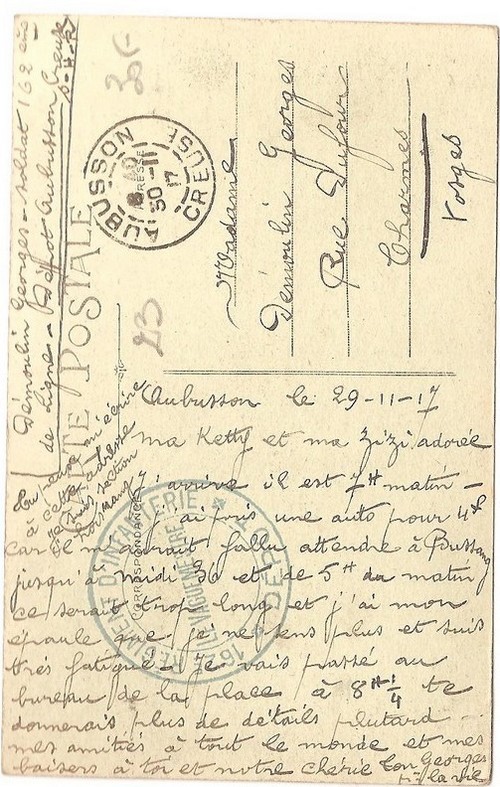 Démoulin Georges - soldat 162 ème
de Ligne - Dépôt Aubusson Creuse
CARTE POSTALE
AUBUSSON
CREUSE
30 - 11
17
23
Madame
Démoulin Georges
Rue Dufour
Charmes
Vosges
CORRESPONDANCE
ADRESSE
RÉGIMENT D'INFANTERIE
Tu peux m'écrire
à cette adresse
je suis section
Aubusson le 29-11-17
ma Ketty et ma Zizi adorée
J'arrive il est 7H matin -
j'ai pris une auto pour 4f
car il m'aurait fallu attendre à Bussang
jusqu'à midi 30 et de 5H du matin
ce serait trop long et j'ai mon
épaule que je ne sens plus et suis
très fatigué - Je vais passé au
bureau de la place à 8H 1/4 te
donnerais plus de détails plutard -
mes amitiés à tout le monde et mes
baisers à toi et notre chérie ton Georges
pr la vie